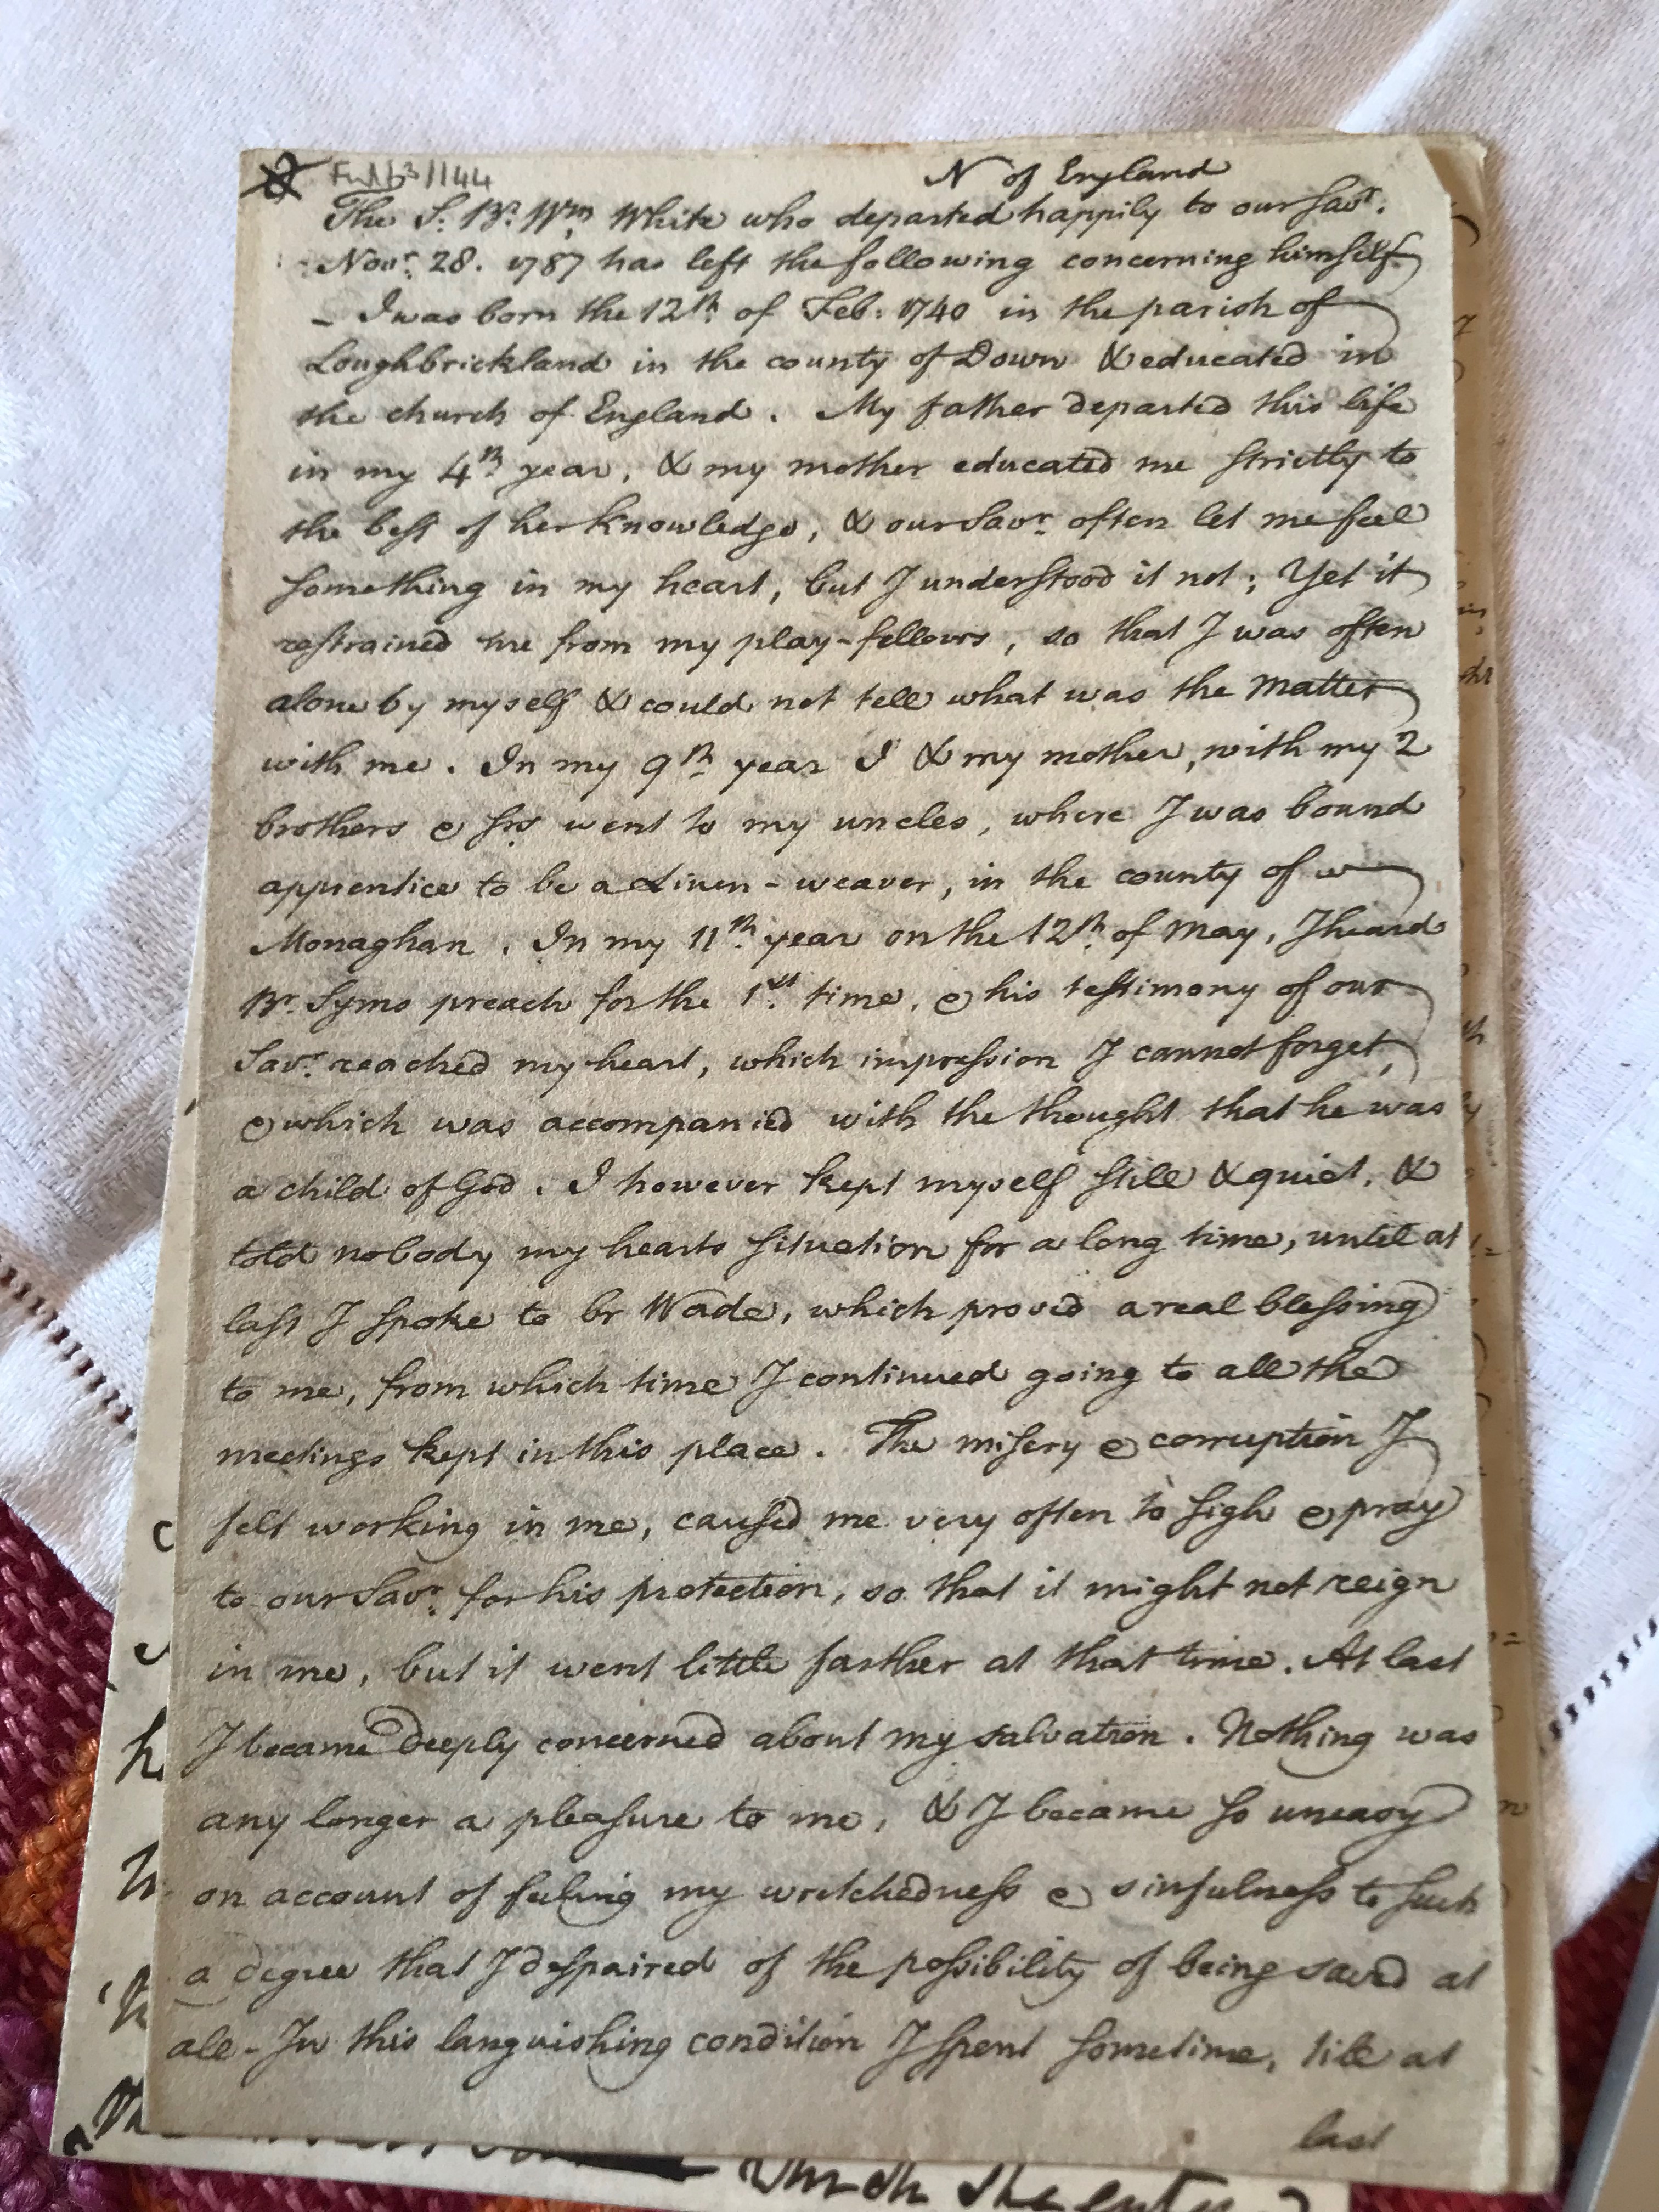 N of England
The S. Br. Wm. White who departed happily to our Savr.
Novr. 28. 1787 has left the following concerning himself
- I was born the 12th. of Feb: 1740 in the parish of
Loughbrickland in the county of Down & educated in
the church of England. My father departed this life
in my 4th year, & my mother educated me strictly to
the best of her knowledge, & our Savr. often let me feel
something in my heart, but I understood it not; Yet it
restrained me from my play-fellows, so that I was often
alone by myself & could not tell what was the matter
with me. In my 9th year I & my mother, with my 2
brothers & srs. went to my uncles, where I was bound
apprentice to be a Linen-weaver, in the county of
Monaghan. In my 11th. year on the 12th. of May, I heard
Br. Syms preach for the 1st. time, & his testimony of our
Savr. reached my heart, which impression I cannot forget,
& which was accompanied with the thought that he was
a child of God. I however kept myself still & quiet, &
told nobody my hearts situation for a long time, until at
last I spoke to br Wade, which proved a real blessing
to me, from which time I continued going to all the
meetings kept in this place. The misery & corruption I
felt working in me, caused me very often to sigh & pray
to our Savr. for his protection, so that it might not reign
in me, but it went little farther at that time. At last
I became deeply concerned about my salvation. Nothing was
any longer a pleasure to me, & I became so uneasy
on account of feeling my wretchedness & sinfulness to such
a degree that I despaired of the possibility of being saved at
all - In this languishing condition I spent sometime, till at
last
which she